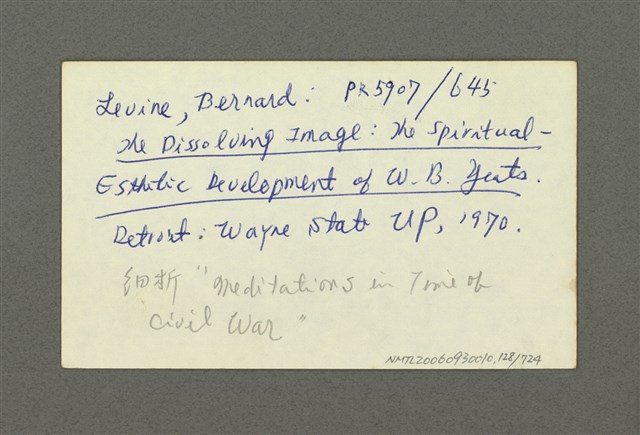 Levine, Bernard: PR5907/645
The Dissolving Image: The Spiritual-
Esthetic Development of W.B. Yeats.
Detroit: Wayne State UP, 1970.
細析 "Meditations in Time of
Civil War"
NMTL20060930010, 128/724